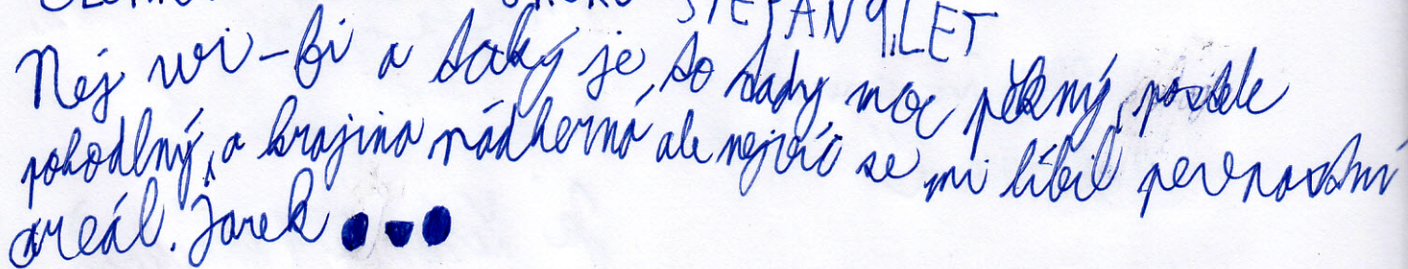 ŠTĚPÁN 9.LET
Nej wi-fi a taký je to tady moc pěkný, postele
pohodlný, a krajina nádherná ale nejvíc se mi líbil
areál. Jarek